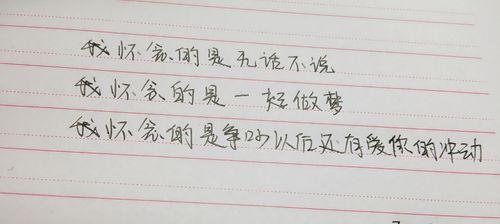 我怀念的是无话不说
我怀念的是一起做梦
我怀念的是争吵以后还有爱你的冲动